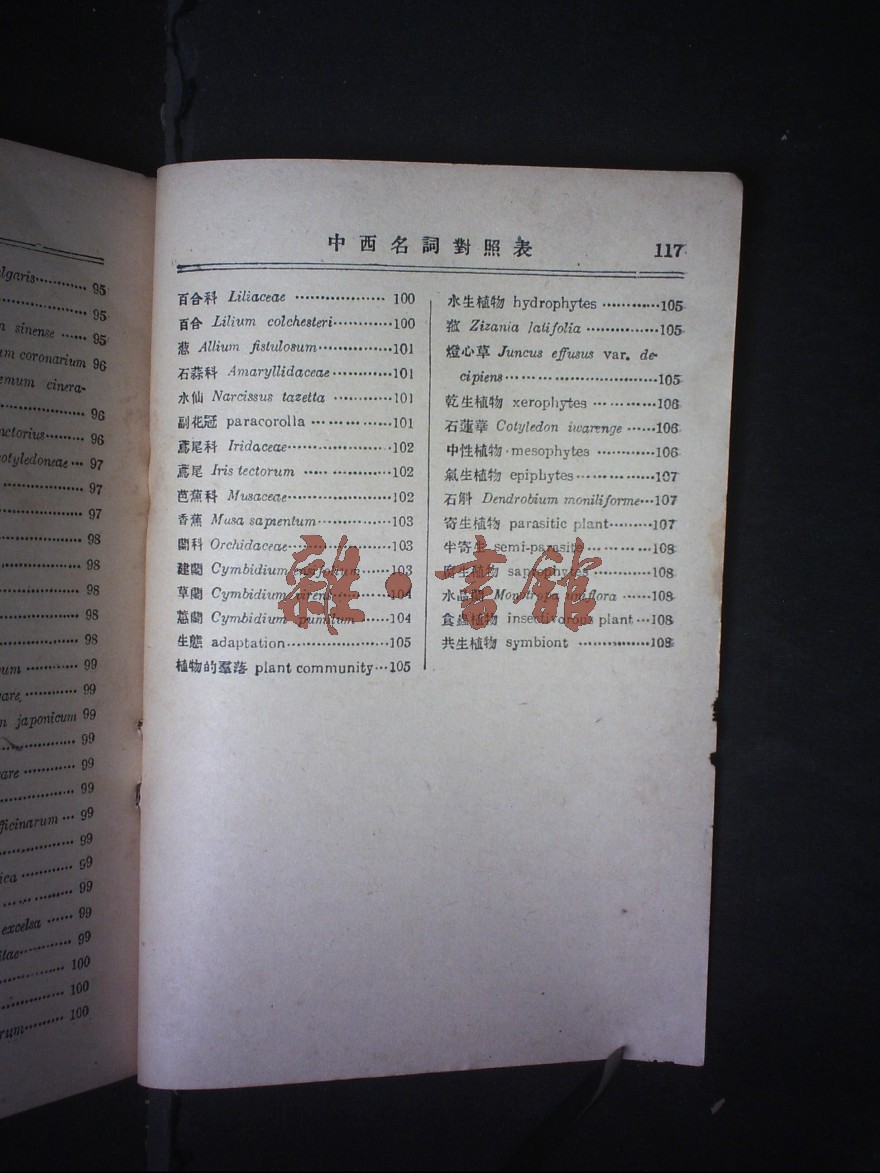 lgaris············ 95
············ 95
n sinense ······ 95
um coronarium 96
emum cinera-
············ 96
nctorius········ 96
cotyledoneae··· 97
············ 97
············ 97
············ 98
············ 98
············ 98
············ 98
············ 98
num ············ 99
are, ············ 99
n japonicum 99
············ 99
are ············ 99
············ 99
fficinarum ··· 99
············ 99
ica ············ 99
············ 99
excelsa ······ 99
itae············ 99
············ 100
············ 100
rum········· 100
中西名詞對照表 117
百合科 Liliaceae ·················· 100
百合 Lilium colchesteri············100
葱 Allium fistulosum···············101
石蒜科 Amaryllidaceae············101
水仙 Narcissus tazetta ············101
副花冠 paracorolla ···············101
鳶尾科 Iridaceae·····················102
鳶尾 Iris tectorum ·················102
芭蕉科 Musaceae·····················102
香蕉 Musa sapientum···············103
蘭科 Orchidaceae·····················103
建蘭 Cymbidium ensifolium······103
草蘭 Cymbidium virens············104
蕙蘭 Cymbidium pumilum ······104
生態 adaptation·····················105
植物的羣落 plant community···105
水生植物 hydrophytes ············105
菰 Zizania latifolia ···············105
燈心草 Juncus effusus var. de-
cipiens·································105
乾生植物 xerophytes ············106
石蓮華 Cotyledon iwarenge ······106
中性植物·mesophytes ············106
氣生植物 epiphytes···············107
石斛 Dendrobium moniliforme···107
寄生植物 parasitic plant·········107
半寄生 semi-parasite ············108
腐生植物 saprophytes············108
水晶蘭 Monotropa uniflora ······108
食蟲植物 insectivorous plant ···108
共生植物 symbiont ···············108
雜·言館